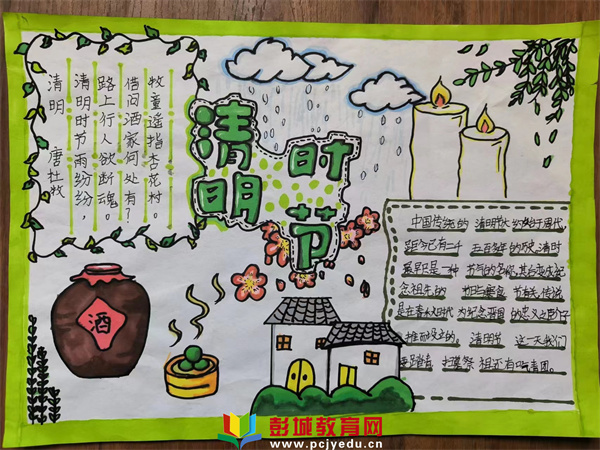 清明 唐杜牧
清明时节雨纷纷，
路上行人欲断魂。
借问酒家何处有？
牧童遥指杏花村。
清明
时节
酒
中国传统的 清明节大约始于周代,
距今已有二千 五百多年的历史,清时
最早只是一种 节气的名称,其后变成纪
念祖先的 节日与寒食 节有关,传说
是在春秋时代 为纪念晋国 的忠义之臣介子
推而设立的。清明节 这一天我们
去踏青、扫墓祭 祖还有吃青团。
彭城教育网
www.pcjyedu.cn